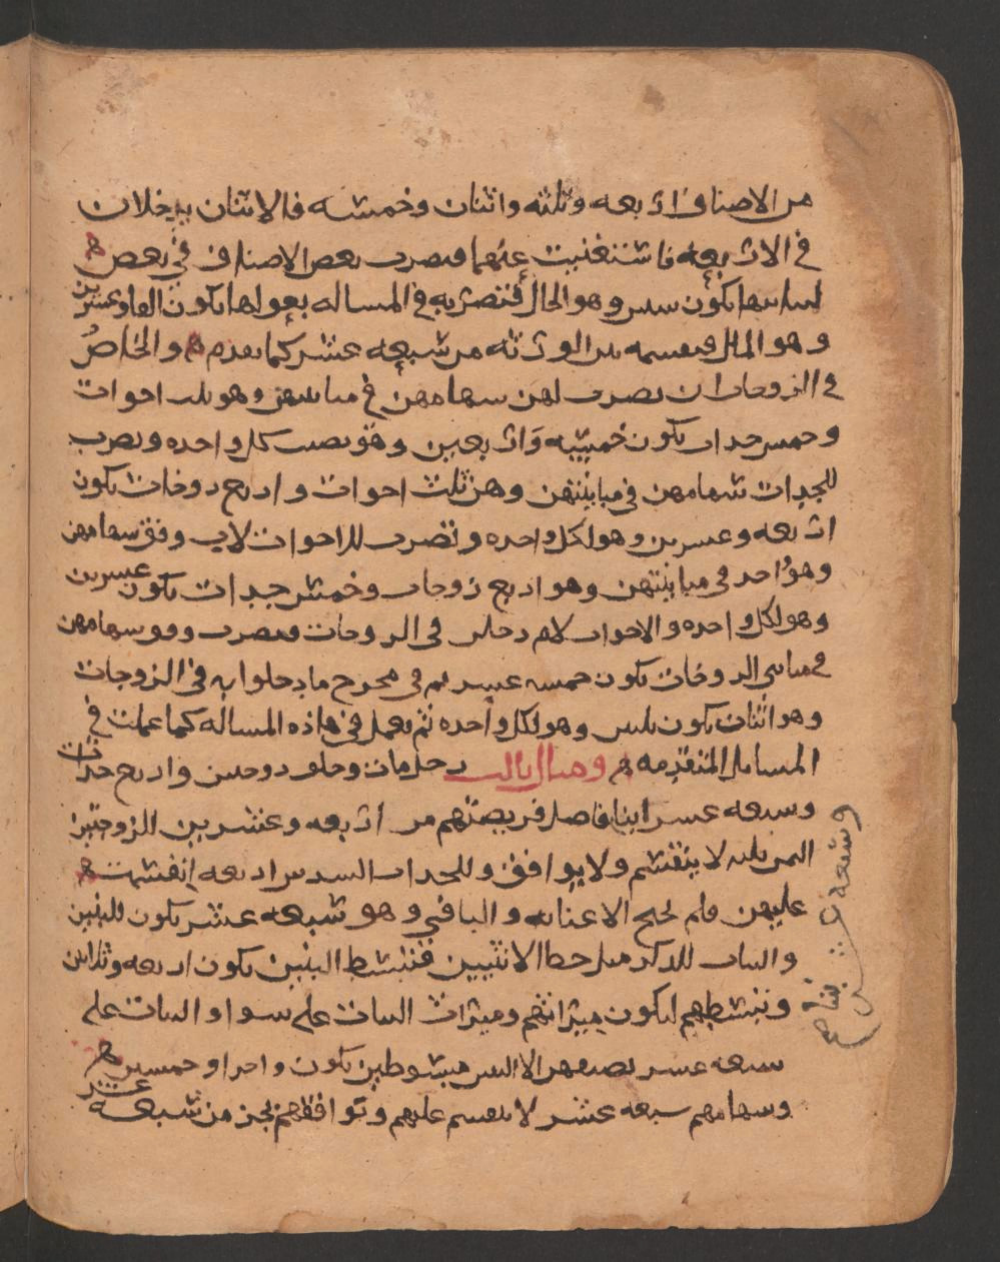 من الاصناف اربعه وثلثه واثنان وخمسه فالاثنان يدخلان
في الاربعه فاستغنيت عنهما فتضرب بعض الاصناف في بعض
يكون ستين وهو الحال فتضربه في المساله بعولها يكون الفا وعشرين
وهو المال فتقسمه بين الورثه من سبعه عشر كما تقدم والخاص
في الزوجات ان تضرب لهن سهامهن في مباينهن وهو ثلث اخوات
وخمس جدات يكون خمسه واربعين وهو نصيب كل واحده وتضرب
للجدات سهامهن في مباينتهن وهن ثلث اخوات واربع زوجات يكون
اربعه وعشرين وهو لكل واحده وتضرب للاخوات لاب وفق سهامهن
وهو واحد في مباينتهن وهو اربع زوجات وخمس جدات يكون عشرين
وهو لكل واحده والاخوات لام دخلن في الزوجات فتضرب وفق سهامهن
في مباين الزوجات يكون خمسه عشر ثم في مخرج ما دخلوا به في الزوجات
وهو اثنان يكون ثلثين وهو لكل واحده ثم تعمل في هذه المساله كما عملت في
المسايل المتقدمه ومثال ثالث رجل مات وخلف زوجتين واربع جدات
وسبعه عشر ابنا فاصل فريضتهم من اربعه وعشرين للزوجتين
الثمن ثلثه لا ينقسم ولا يوافق وللجدات السدس اربعه انقسمت
عليهن فلم تحتج الا عنايه والباقي وهو سبعه عشر يكون للبنين
والبنات للذكر مثل حظ الانثيين فتبسط البنين يكون اربعه وثلاثين
وتبسطهم ليكون ميراثهم وميراث البنات على سوا والبنات على
سبعه عشر نصفهم الا البنين مبسوطين يكون واحدا وخمسين
وسهامهم سبعه عشر لا ينقسم عليهم وتوافقهم بجز من سبعه عشر
وسبعه عشر بنتا صح